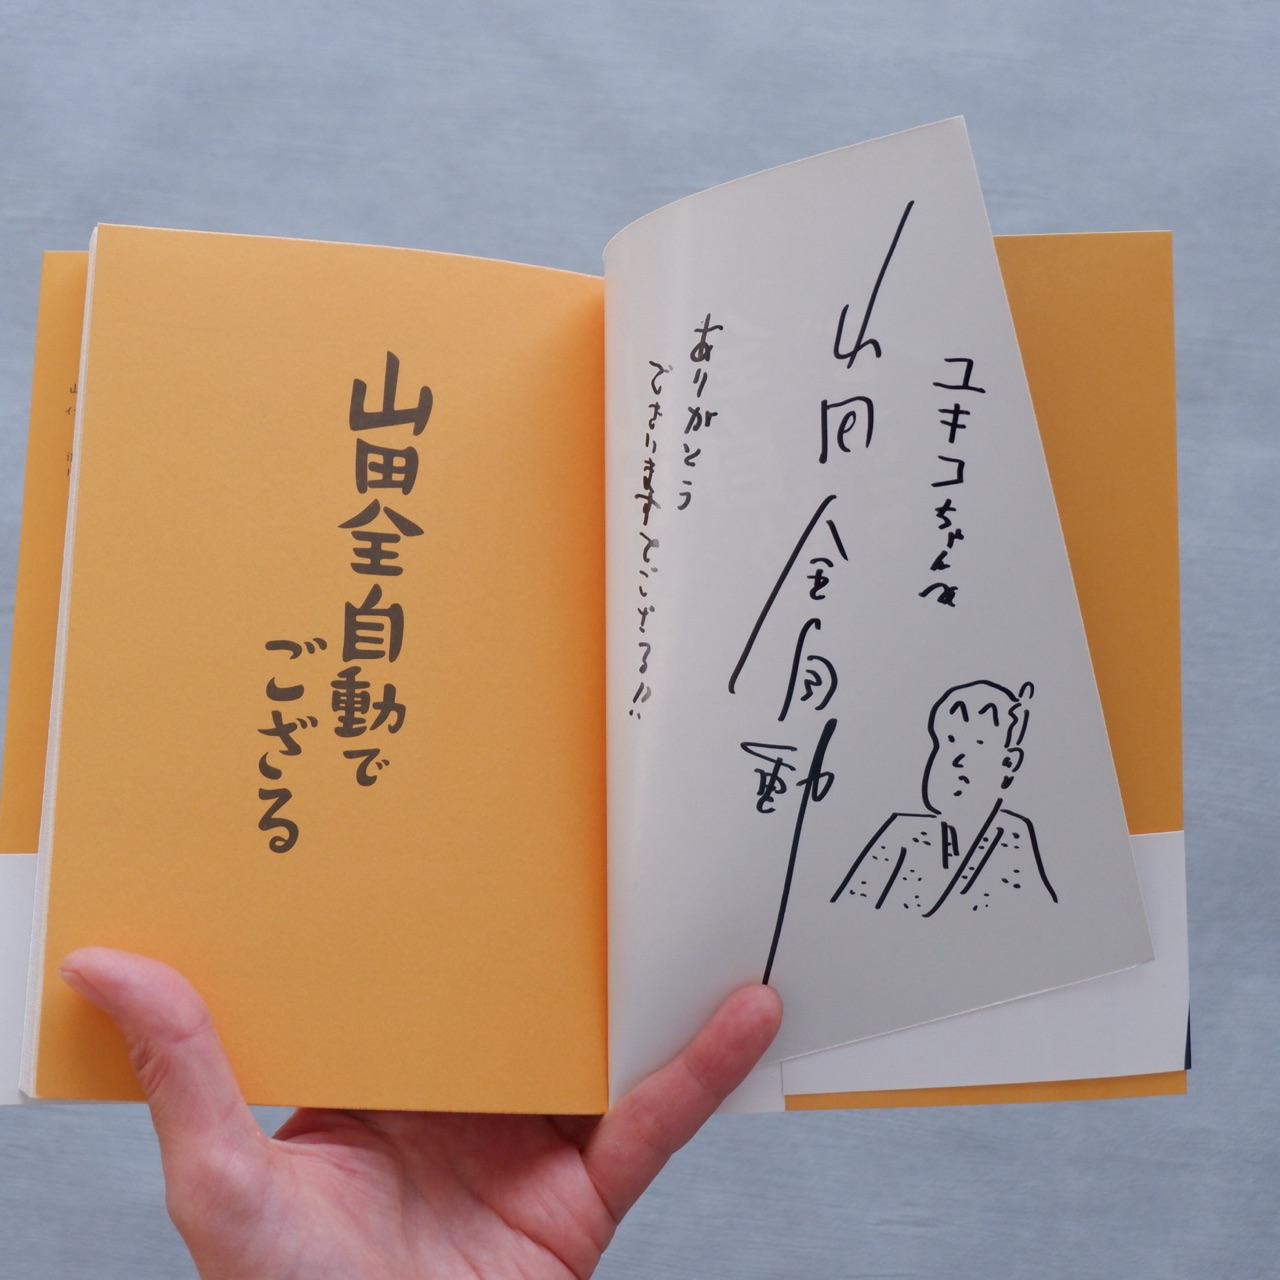 ユキコちゃんへ
山田全自動
ありがとう
ございますでござる!!
山田全自動で
ござる